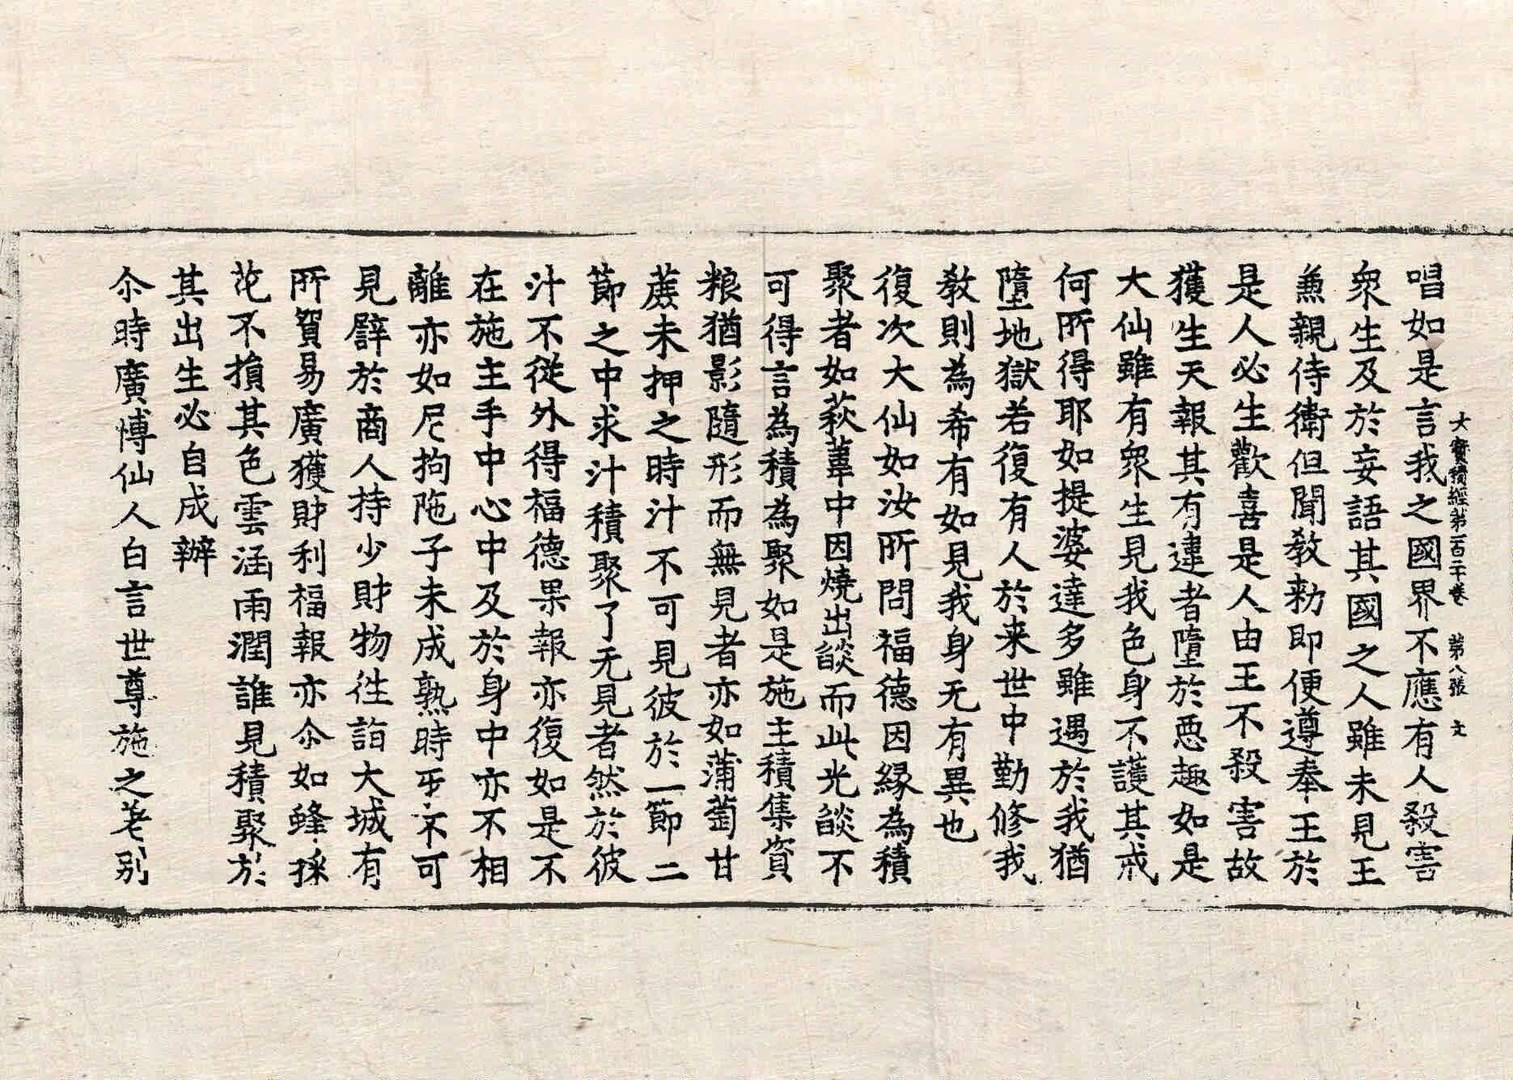 大寶積經第一百二十卷　第八張　文
唱如是言我之國界不應有人殺害
衆生及於妄語其國之人雖未見王
兼親侍衛但聞教勑即便遵奉王於
是人必生歡喜是人由王不殺害故
獲生天報其有違者墮於惡趣如是
大仙雖有衆生見我色身不護其戒
何所得耶如提婆達多雖遇於我猶
墮地獄若復有人於来世中勤修我
教則為希有如見我身无有異也
復次大仙如汝所問福德因緣為積
聚者如萩葦中因燒出燄而此光燄不
可得言為積為聚如是施主積集資
粮猶影隨形而無見者亦如蒲萄甘
蔗未押之時汁不可見彼於一節二
節之中求汁積聚了无見者然於彼
汁不從外得福德果報亦復如是不
在施主手中心中及於身中亦不相
離亦如尼拘陁子未成熟時牙不可
見譬於商人持少財物往詣大城有
所貿易廣獲財利福報亦尒如蜂採
花不損其色雲涵雨潤誰見積聚於
其出生必自成辦
尒時廣博仙人白言世尊施之差別